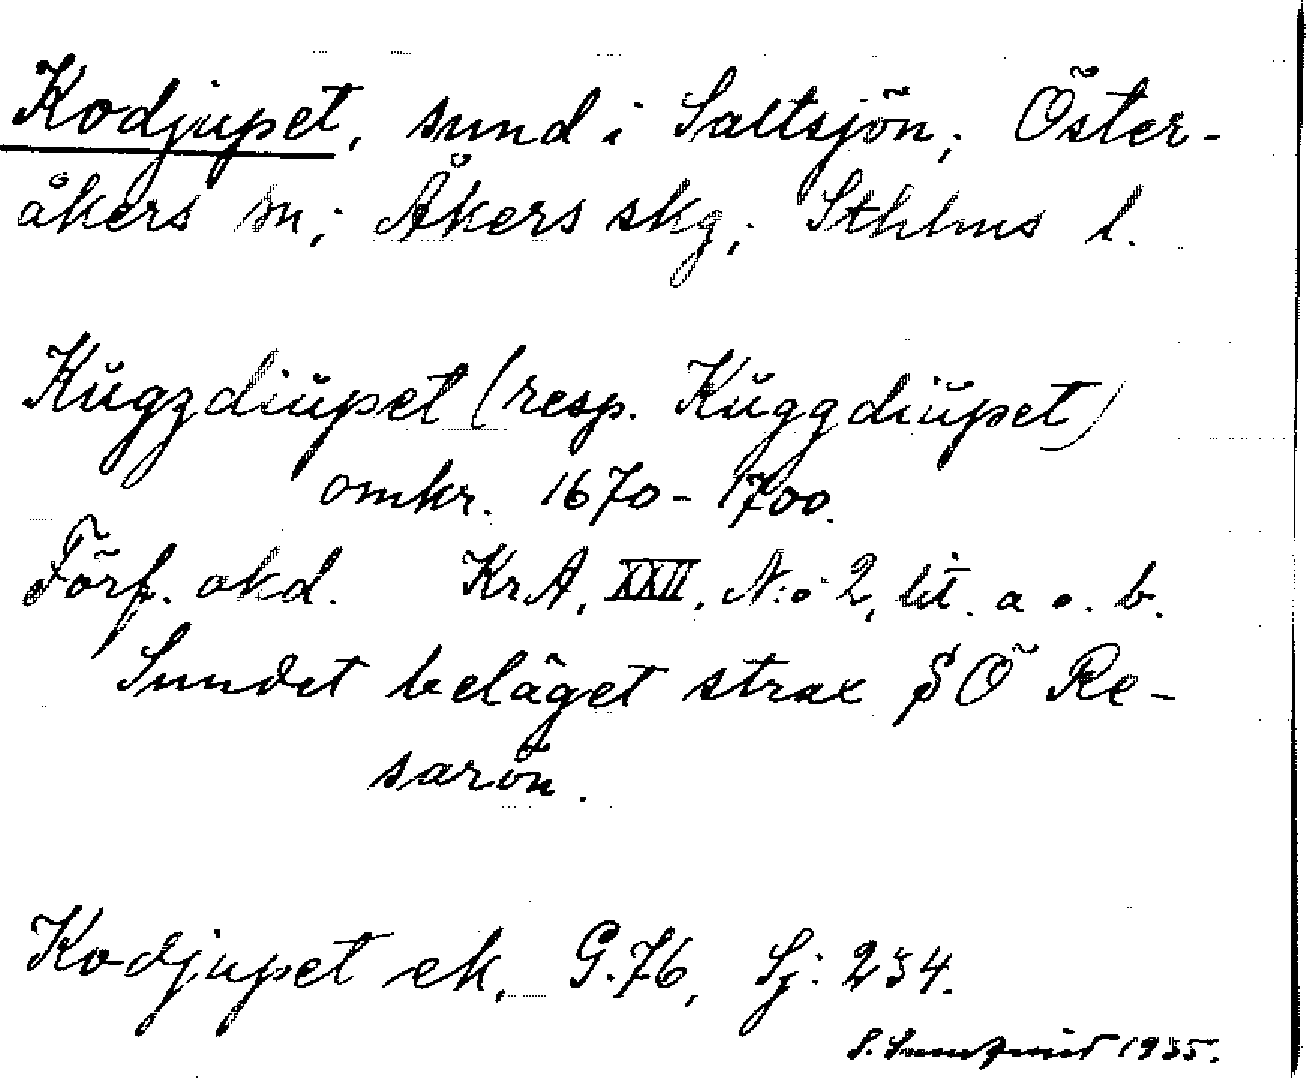 Kodjupet, sund i Saltsjön; Öster-
åkers sn; Åkers skg; Sthlms l.
Kŭgzdiŭpet (resp. Kŭggdiŭpet)
omkr. 1670-1700.
Förf. okd. KrA, XXII, N:o 2, lit. a o. b.
Sundet beläget strax SÖ Re-
sarön.
Kodjupet ek, G. 76, Sj: 234.
S. 1935.